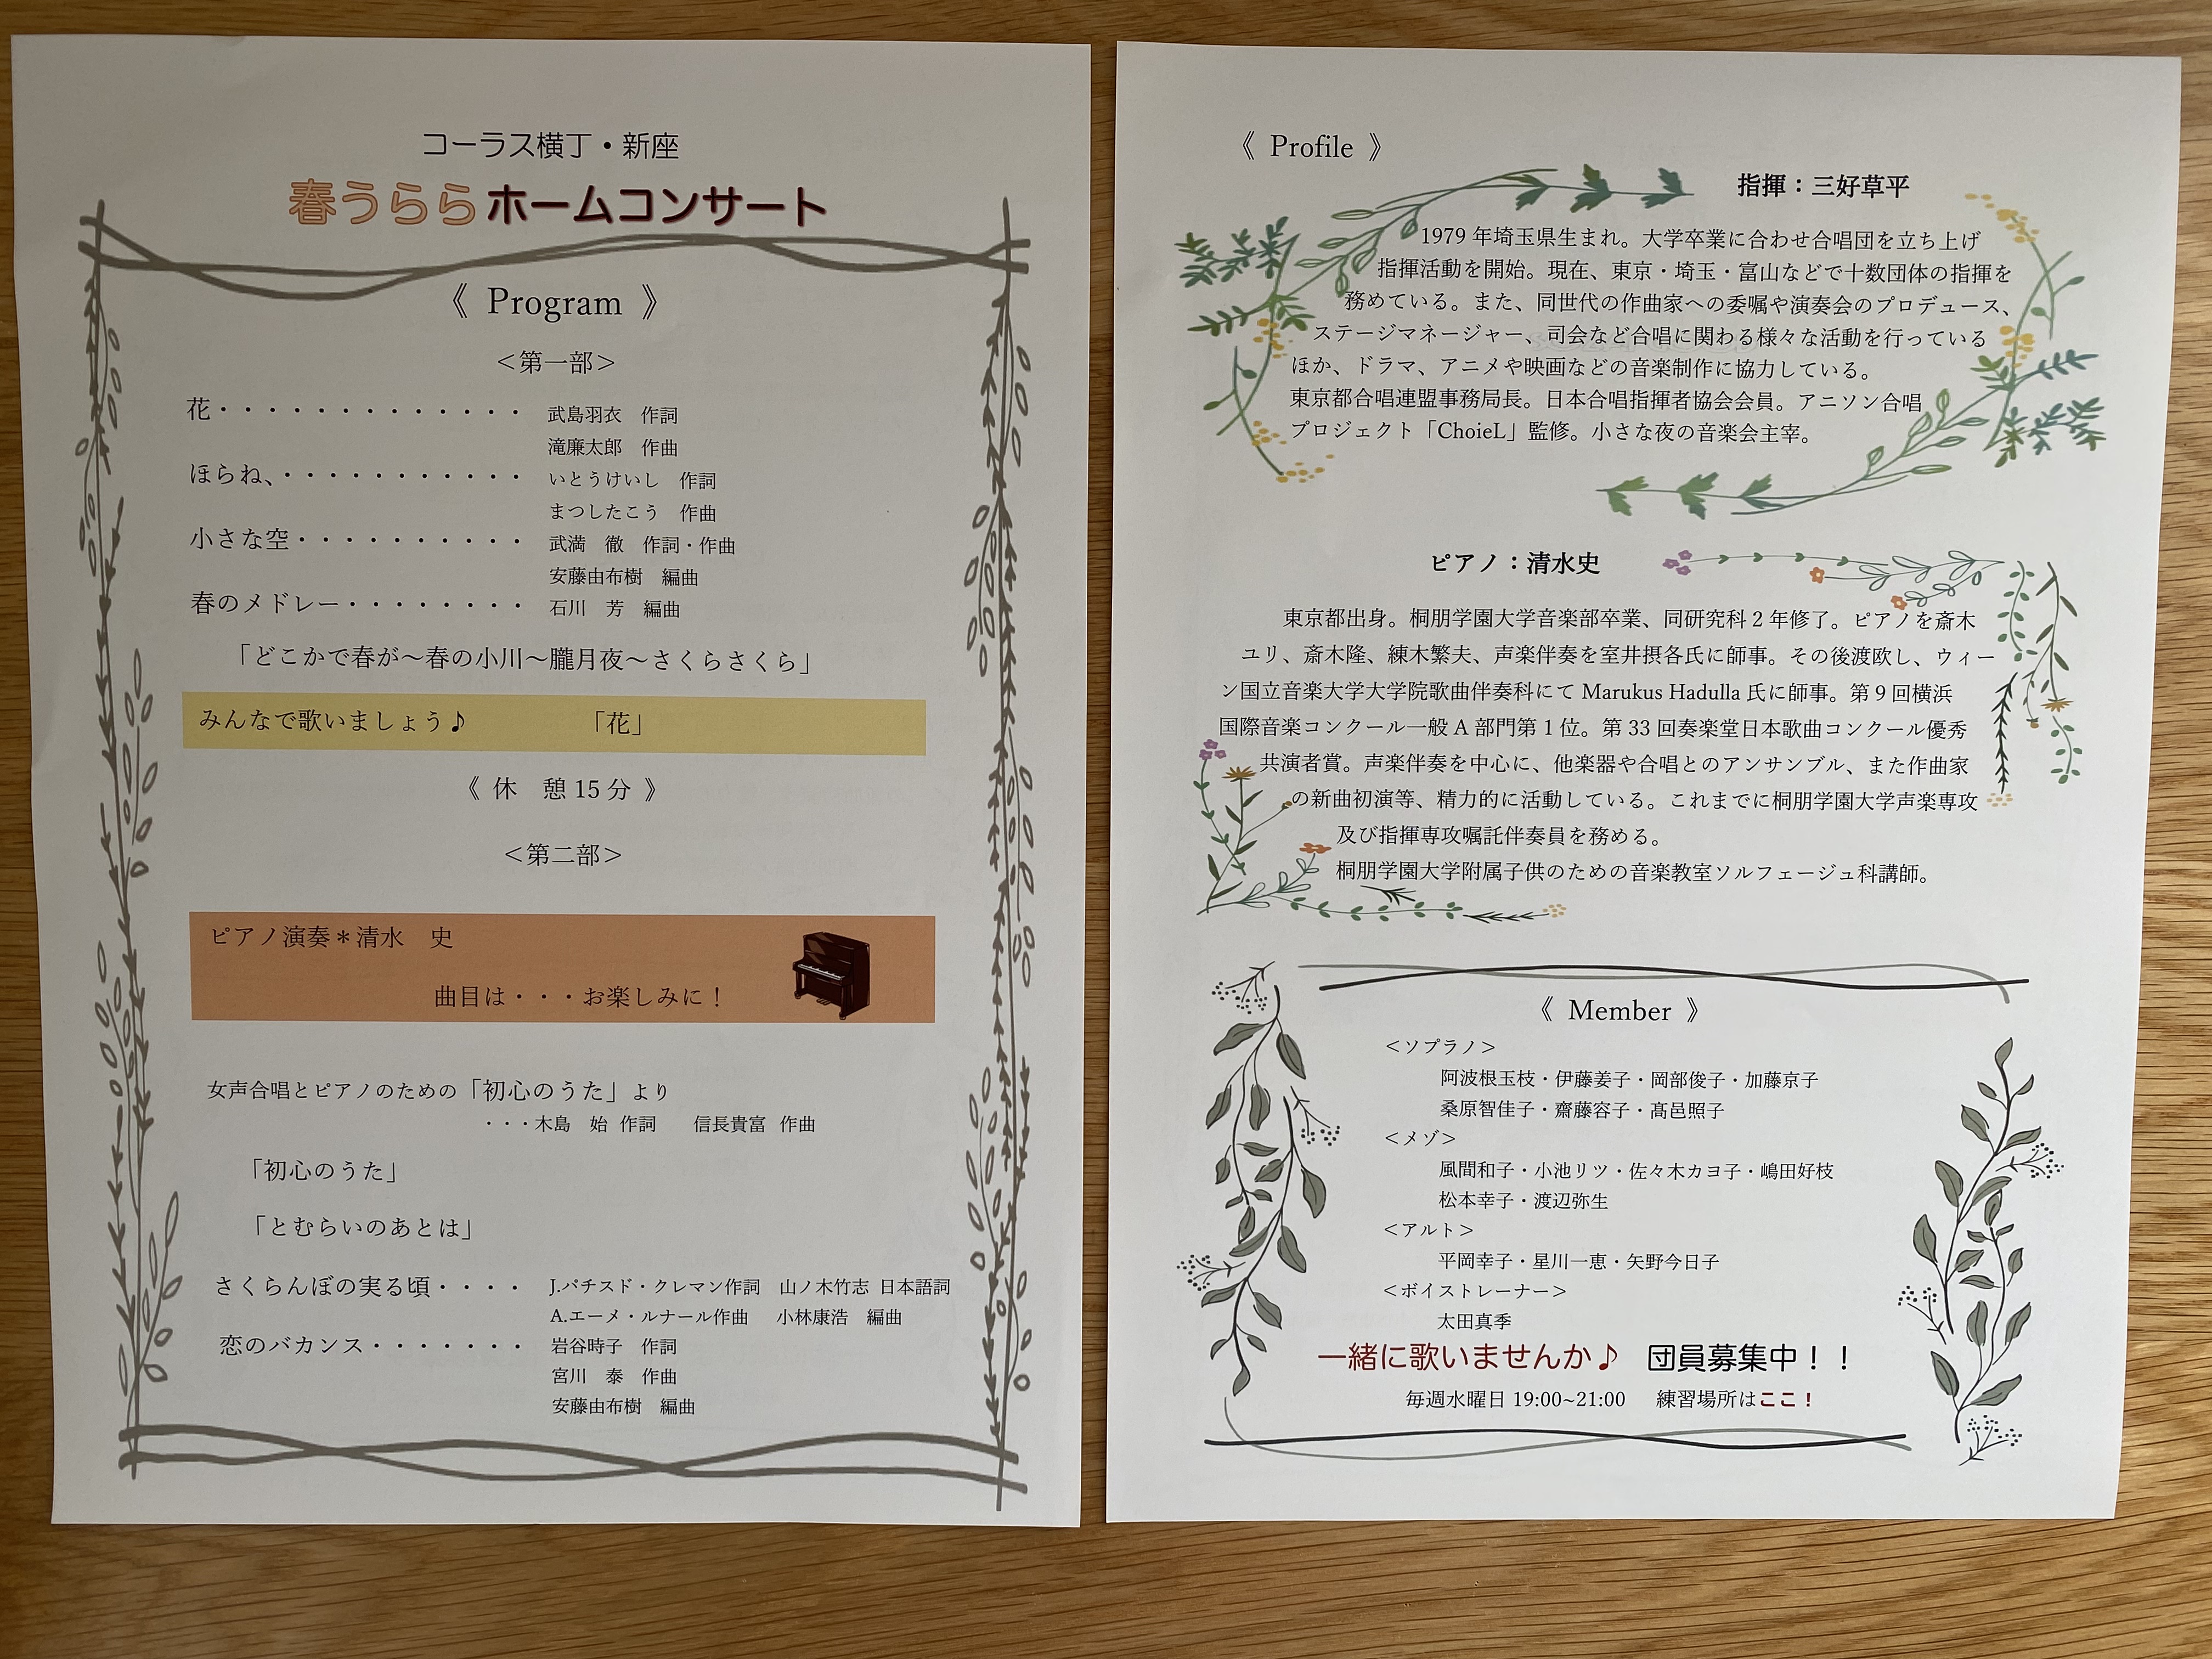 コーラス横丁・新座
春うららホームコンサート
《 Program 》
＜第一部＞
花・・・・・・・・・・・・・ 武島羽衣　作詞
滝廉太郎　作曲
ほらね、・・・・・・・・・・・ いとうけいし　作詞
まつしたこう　作曲
小さな空・・・・・・・・・・ 武満　徹　作詞・作曲
安藤由布樹　編曲
春のメドレー・・・・・・・・ 石川　芳　編曲
「どこかで春が～春の小川～朧月夜～さくらさくら」
みんなで歌いましょう♪　「花」
《 休　憩 15 分 》
＜第二部＞
ピアノ演奏＊清水　史
曲目は・・・お楽しみに！
女声合唱とピアノのための「初心のうた」より
・・・木島　始 作詞　信長貴富 作曲
「初心のうた」
「とむらいのあとは」
さくらんぼの実る頃・・・・ J.パチスド・クレマン作詞　山ノ木竹志 日本語詞
A.エーメ・ルナール作曲　小林康浩　編曲
恋のバカンス・・・・・・・ 岩谷時子　作詞
宮川　泰　作曲
安藤由布樹　編曲
《 Profile 》
指揮：三好草平
1979 年埼玉県生まれ。大学卒業に合わせ合唱団を立ち上げ
指揮活動を開始。現在、東京・埼玉・富山などで十数団体の指揮を
務めている。また、同世代の作曲家への委嘱や演奏会のプロデュース、
ステージマネージャー、司会など合唱に関わる様々な活動を行っている
ほか、ドラマ、アニメや映画などの音楽制作に協力している。
東京都合唱連盟事務局長。日本合唱指揮者協会会員。アニソン合唱
プロジェクト「ChoieL」監修。小さな夜の音楽会主宰。
ピアノ：清水史
東京都出身。桐朋学園大学音楽部卒業、同研究科 2 年修了。ピアノを斎木
ユリ、斎木隆、練木繁夫、声楽伴奏を室井摂各氏に師事。その後渡欧し、ウィー
ン国立音楽大学大学院歌曲伴奏科にて Marukus Hadulla 氏に師事。第 9 回横浜
国際音楽コンクール一般 A 部門第 1 位。第 33 回奏楽堂日本歌曲コンクール優秀
共演者賞。声楽伴奏を中心に、他楽器や合唱とのアンサンブル、また作曲家
の新曲初演等、精力的に活動している。これまでに桐朋学園大学声楽専攻
及び指揮専攻嘱託伴奏員を務める。
桐朋学園大学附属子供のための音楽教室ソルフェージュ科講師。
《 Member 》
＜ソプラノ＞
阿波根玉枝・伊藤姜子・岡部俊子・加藤京子
桑原智佳子・齋藤容子・髙邑照子
＜メゾ＞
風間和子・小池リツ・佐々木カヨ子・嶋田好枝
松本幸子・渡辺弥生
＜アルト＞
平岡幸子・星川一恵・矢野今日子
＜ボイストレーナー＞
太田真季
一緒に歌いませんか♪　団員募集中！！
毎週水曜日 19:00~21:00　練習場所はここ！